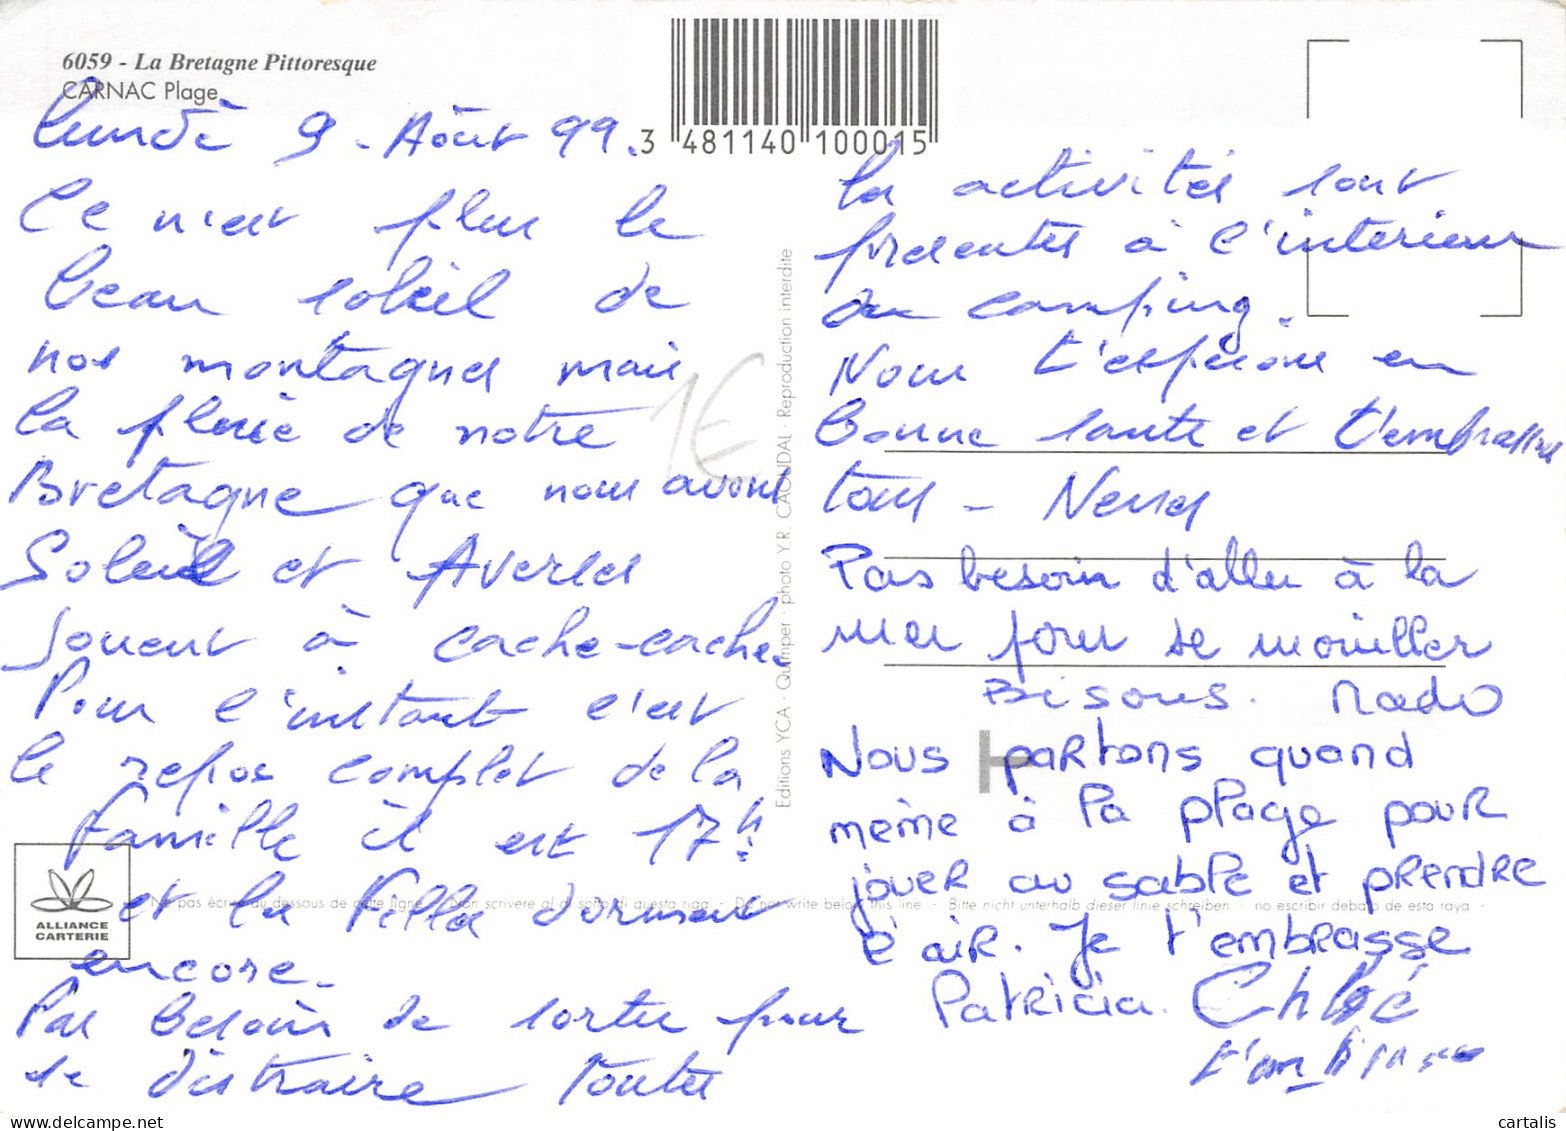 6059 - La Bretagne Pittoresque
CARNAC Plage
3 481140 100015
Lundi 9 - Août 99.
Ce n'est plus le
beau soleil de
nos montagnes mais
la pluie de notre
Bretagne que nous avons
Soleil et Averses
Jouent à cache-cache.
Pour l'instant c'est
le repos complet de la
famille il est 17h
et les filles dorment
encore.
Pas besoin de sortir pour
se distraire toutes
les activités sont
présentes à l'intérieur
du camping.
Nous t'espérons en
bonne santé et t'embrassons
tous -
Pas besoin d'aller à la
mer pour se mouiller
Bisous. Mado
Nous partons quand
même à la plage pour
jouer au sable et prendre
l'air. Je t'embrasse
Patricia. Chloé
t'embrasse
1€
Editions YCA - Quimper - photo Y.R. CAOUDAL - Reproduction interdite
ALLIANCE
CARTERIE
Ne pas écrire au dessous de cette ligne - Non scrivere al di sotto di questa riga - Do not write below this line - Bitte nicht unterhalb dieser linie schreiben - no escribir debajo de esta raya -
cartalis